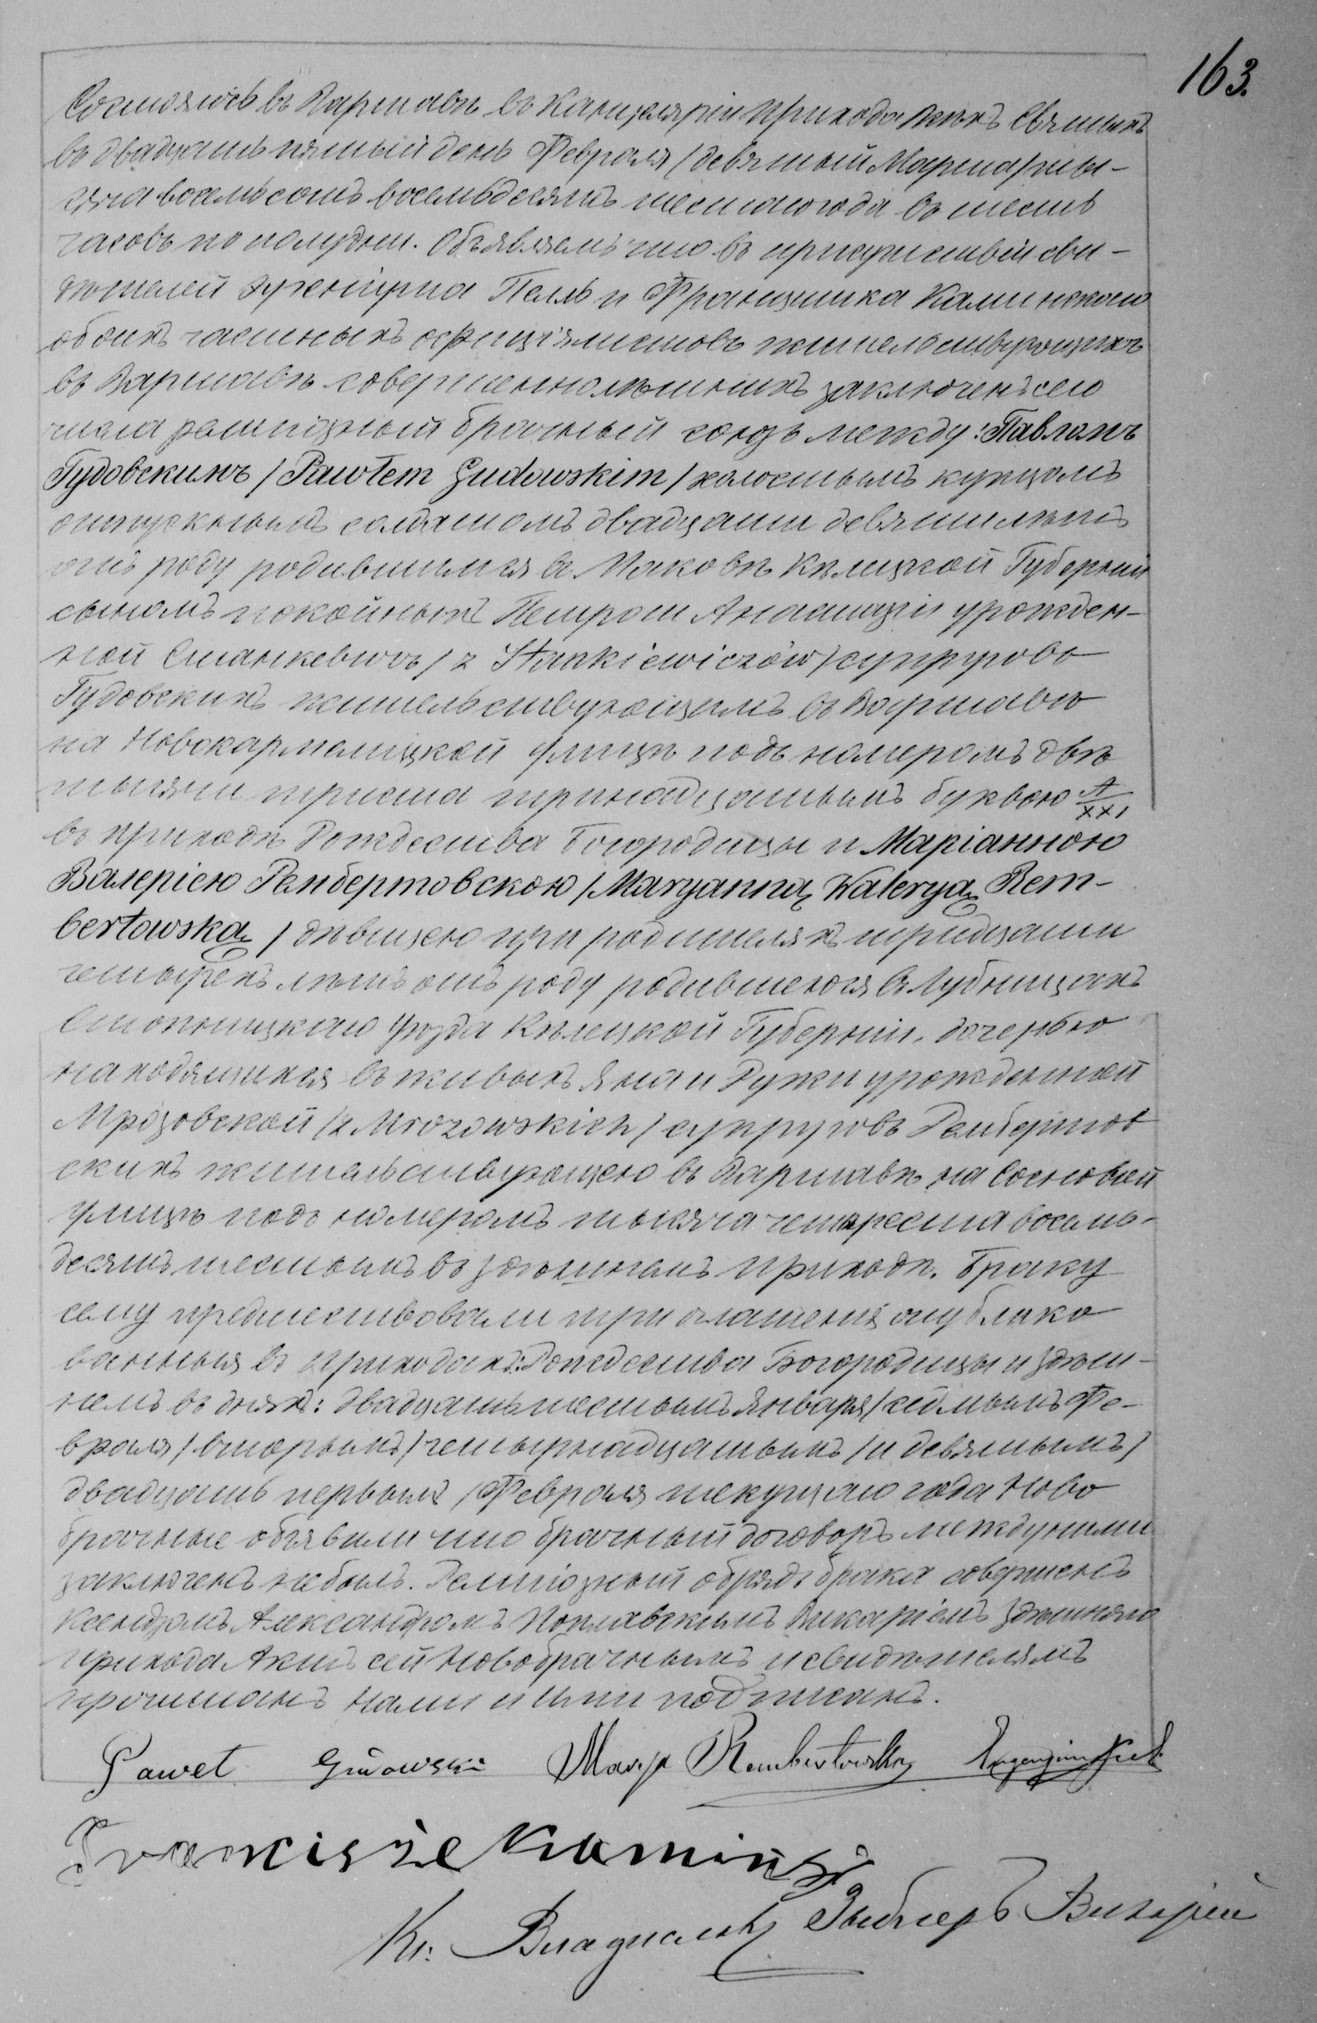 163.
Состоялось въ Варшавѣ въ Канцеляріи Прихода Всѣхъ Святыхъ
въ двадцать пятый день Февраля /девятый Марта/ ты-
сяча восемьсотъ восемьдесятъ шестаго года въ шесть
часовъ по полудни. Объявляемъ что въ присутствіи сви-
дѣтелей Эугеніуша и Францишка Каминскаго
обоихъ частныхъ оффиціялистовъ жительствующихъ
въ Варшавѣ совершеннолѣтнихъ заключенъ сего
числа религіозный брачный союзъ между: Павломъ
Гудовскимъ /Pawłem Gudowskim/ холостымъ купцомъ
отпускнымъ солдатомъ двадцати девяти лѣтъ
отъ роду родившимся в. Маковѣ Кѣлецкой Губерніи
сыномъ покойныхъ Петра и Анастазіи урожден-
ной Станкевичъ /z Stankiewiczów/ супруговъ
Гудовскихъ жительствующимъ въ Варшавѣ
на Новокармелицкой улицѣ подъ номеромъ двѣ
тысячи триста тринадцатымъ буквою А/XXI
въ приходѣ Рождества Богородицы и Маріанною
Валеріею Рембертовскою /Maryanną Waleryą Rem-
bertowską/ дѣвицею при родителяхъ тридцати
четырехъ лѣтъ отъ роду родившеюся в. Лубницахъ
Стопницкаго Уѣзда Кѣлецкой Губерніи, дочерью
находящихся въ живыхъ Яна и Ружи урожденной
Мрозовской /z Mrozowskich/ супруговъ Рембертов
скихъ жительствующею въ Варшавѣ на Сосновой
улицѣ подъ номеромъ тысяча четыреста восемь-
десятъ шестымъ въ здѣшнемъ приходѣ. Браку
сему предшествовали три оглашенія опублико
ванныя въ приходахъ: Рождества Богородицы и здѣш-
немъ въ дняхъ: двадцать шестымъ Января /седьмымъ Фе-
враля/ вторымъ /четырнадцатымъ/ и девятымъ/
двадцать первымъ/ Февраля текущаго года Ново
брачные объявили что брачный договоръ между ними
заключенъ небылъ. Религіозный обрядъ брака совершенъ
Ксендзомъ Александромъ Поплавскимъ Викаріемъ здѣшняго
прихода Актъ сей Новобрачнымъ и свидѣтелямъ
прочитанъ нами и ими подписанъ.
Paweł Gudowski Marya Rembertowska
Franciszek Kamiński
Кс. Викарій